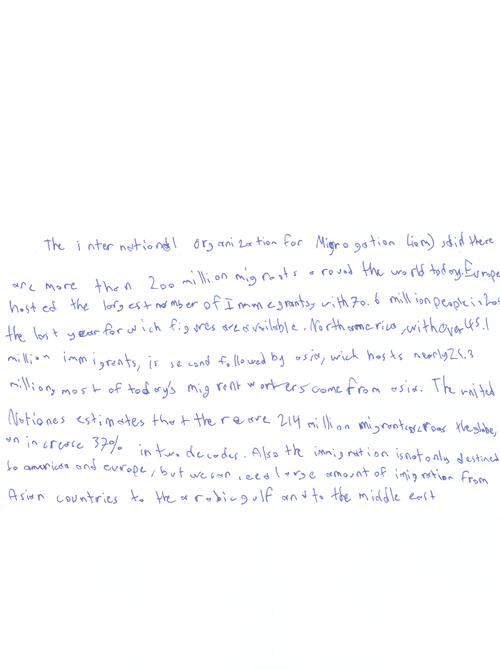 The international Organization for Migrogation (iom) sdid there
are more than 200 million migrants around the world today. Europe
hosted the largest number of Immegrants, with 70.6 million people in 20
the last year for wich figures are available. North america, with over 45.1
million immigrants, is second followed by asia, wich hosts nearly 25.3
million, most of today's migrent workers come from asia. The united
Nationes estimates that there are 214 million migrants across the globe,
an increase 37% in two decades. Also the immigration is not only destined
to american and europe, but we can seed large amount of imigration from
Asian countries to the arabic gulf and to the middle east